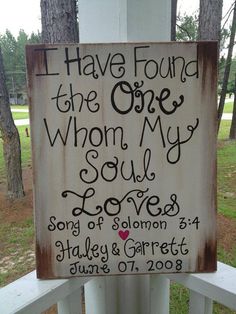 I Have Found
the One
Whom My
Soul
Loves
Song of Solomon 3:4
Haley & Garrett
June 07, 2008